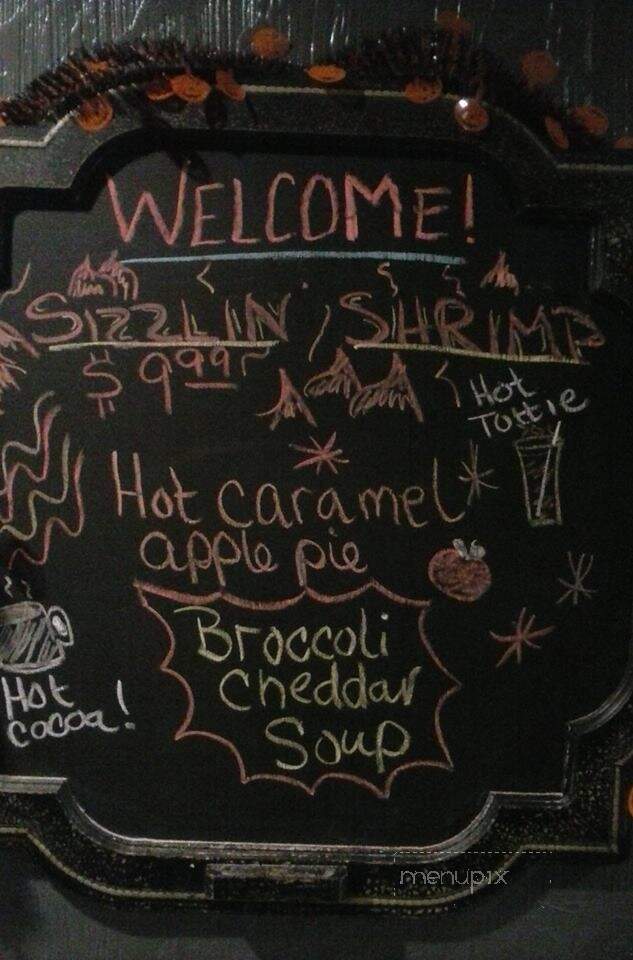 WELCOME!
SIZZLIN SHRIMP
$9.99
Hot
Tottie
Hot caramel
apple pie
Broccoli
Cheddar
Soup
Hot
cocoa!
menupix